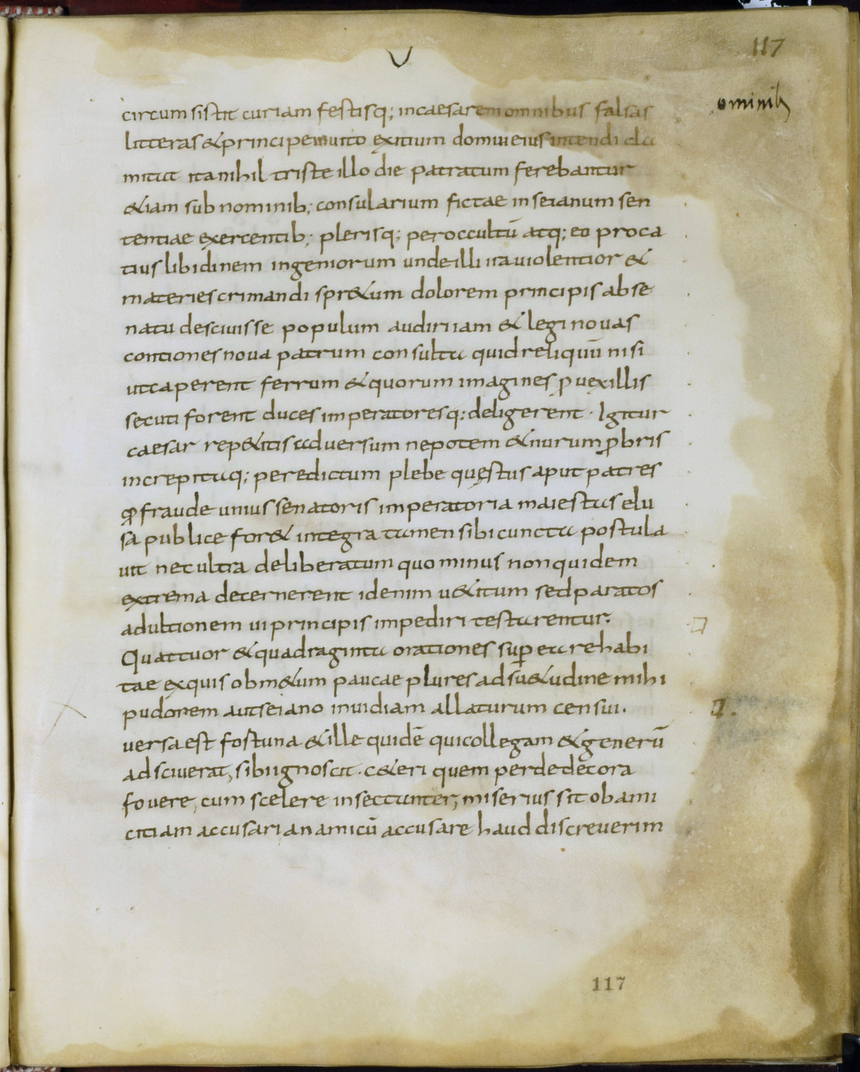 117
ominib;
circum sistit curiam festisq; incaesarem omnibus falsas
litteras & principe inuito exitium domui eius intendi cla
mitat ita nihil triste illo die patratum ferebantur
&iam sub nominib; consularium fictae in seianum sen
tentiae exercentib; plerisq; per occultū atq; eo proca
tius libidinem ingeniorum unde illi ira violentior &
materies crimandi spr&um dolorem principis ab se
natu desciuisse populum audiri iam & legi nouas
contiones noua patrum consulta quid reliquiū nisi
ut caperent ferrum & quorum imagines ꝓ uexillis
secuti forent duces imperatoresq; deligerent · Igitur
caesar rep&itis aduersum nepotem & nurum ꝓbris
increpitaq; per edictum plebe quęstus aput patres
qđ fraude unius senatoris imperatoria maiestas elu
sa publice for& integra tamen sibi cuncta postula
uit nec ultra deliberatum quo minus non quidem
extrema decernerent id enim u&itum sed paratos
ad ultionem ui principis impediri testarentur.
Quattuor & quadraginta orationes suꝑ ea re habi
tae ex quis ob m&um paucae plures ad su&udine mihi
pudorem aut seiano inuidiam allaturum censui.
uersa est fostuna & ille quidē qui collegam & generū
ad sciuerat, sibi ignoscit · c&eri quem per dedecora
fouere, cum scelere insectanter, miserius sit ob ami
citiam accusari an amicū accusare haud discreuerim
117